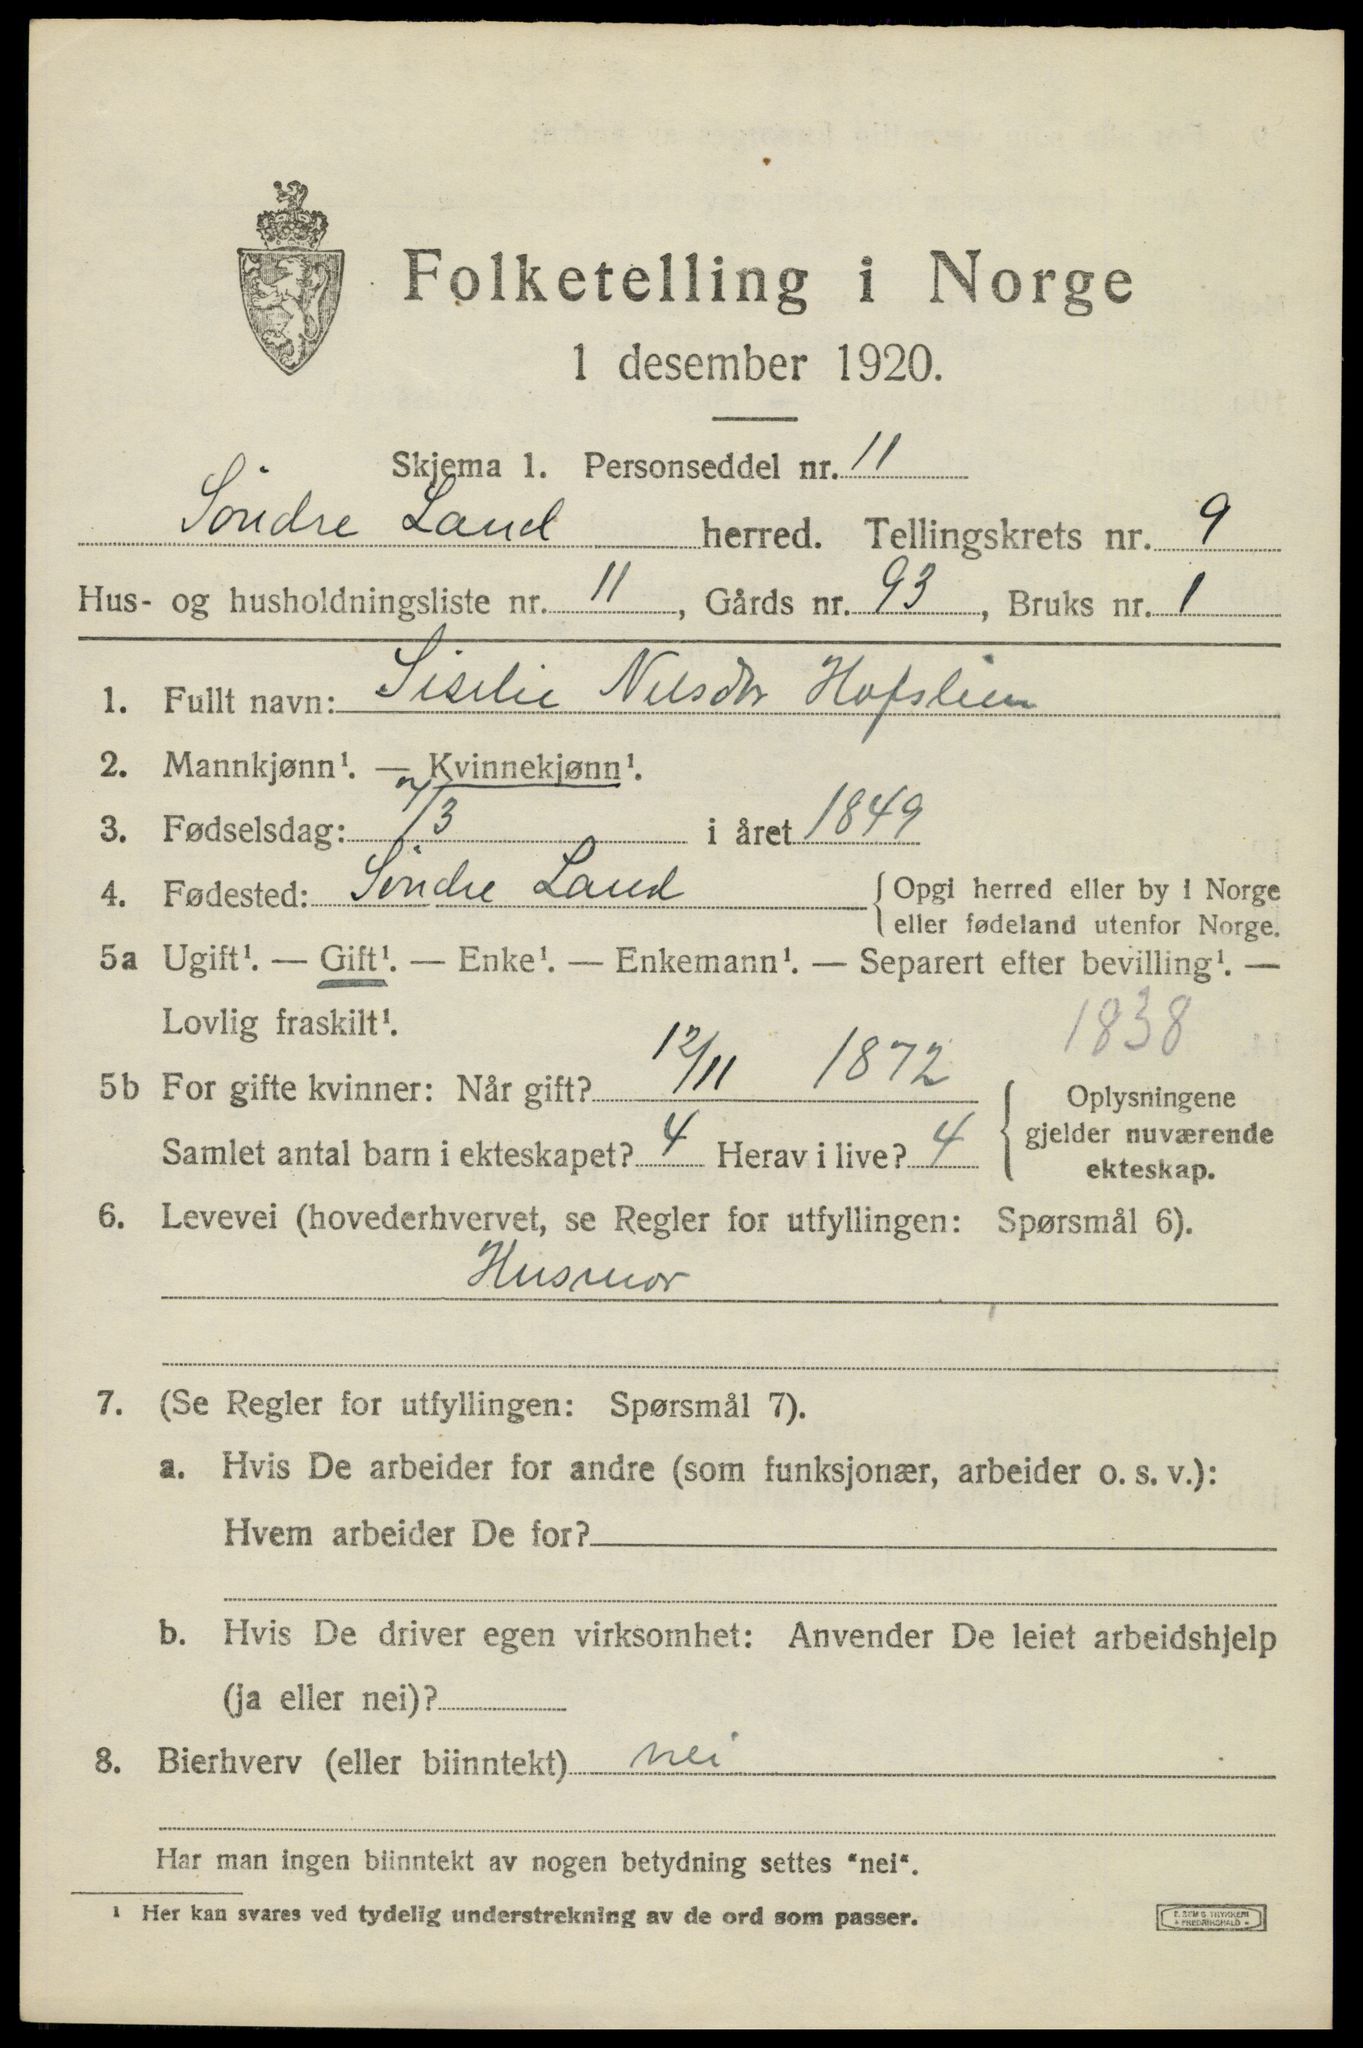 Folketelling i Norge
1 desember 1920.
Skjema 1. Personseddel nr. 11
Söndre Land herred. Tellingskrets nr. 9
Hus- og husholdningsliste nr. 11, Gårds nr. 93, Bruks nr. 1
1. Fullt navn: Siselie Nilsdtr Hofslien
2. Mannkjønn¹. — Kvinnekjønn¹.
3. Fødselsdag: /3 i året 1849
4. Fødested: Söndre Land { Opgi herred eller by i Norge
eller fødeland utenfor Norge.
5a Ugift¹. — Gift¹. — Enke¹. — Enkemann¹. — Separert efter bevilling¹. —
Lovlig fraskilt¹.
1838
5b For gifte kvinner: Når gift? 12/11 1872 { Oplysningene
gjelder nuværende
ekteskap.
Samlet antal barn i ekteskapet? 4 Herav i live? 4
6. Levevei (hovederhvervet, se Regler for utfyllingen: Spørsmål 6).
Husmor
7. (Se Regler for utfyllingen: Spørsmål 7).
a. Hvis De arbeider for andre (som funksjonær, arbeider o. s. v.):
Hvem arbeider De for?
b. Hvis De driver egen virksomhet: Anvender De leiet arbeidshjelp
(ja eller nei)?
8. Bierhverv (eller biinntekt) nei
Har man ingen biinntekt av nogen betydning settes "nei".
¹ Her kan svares ved tydelig understrekning av de ord som passer.
TRYKKERI
FREDRIKSHALD